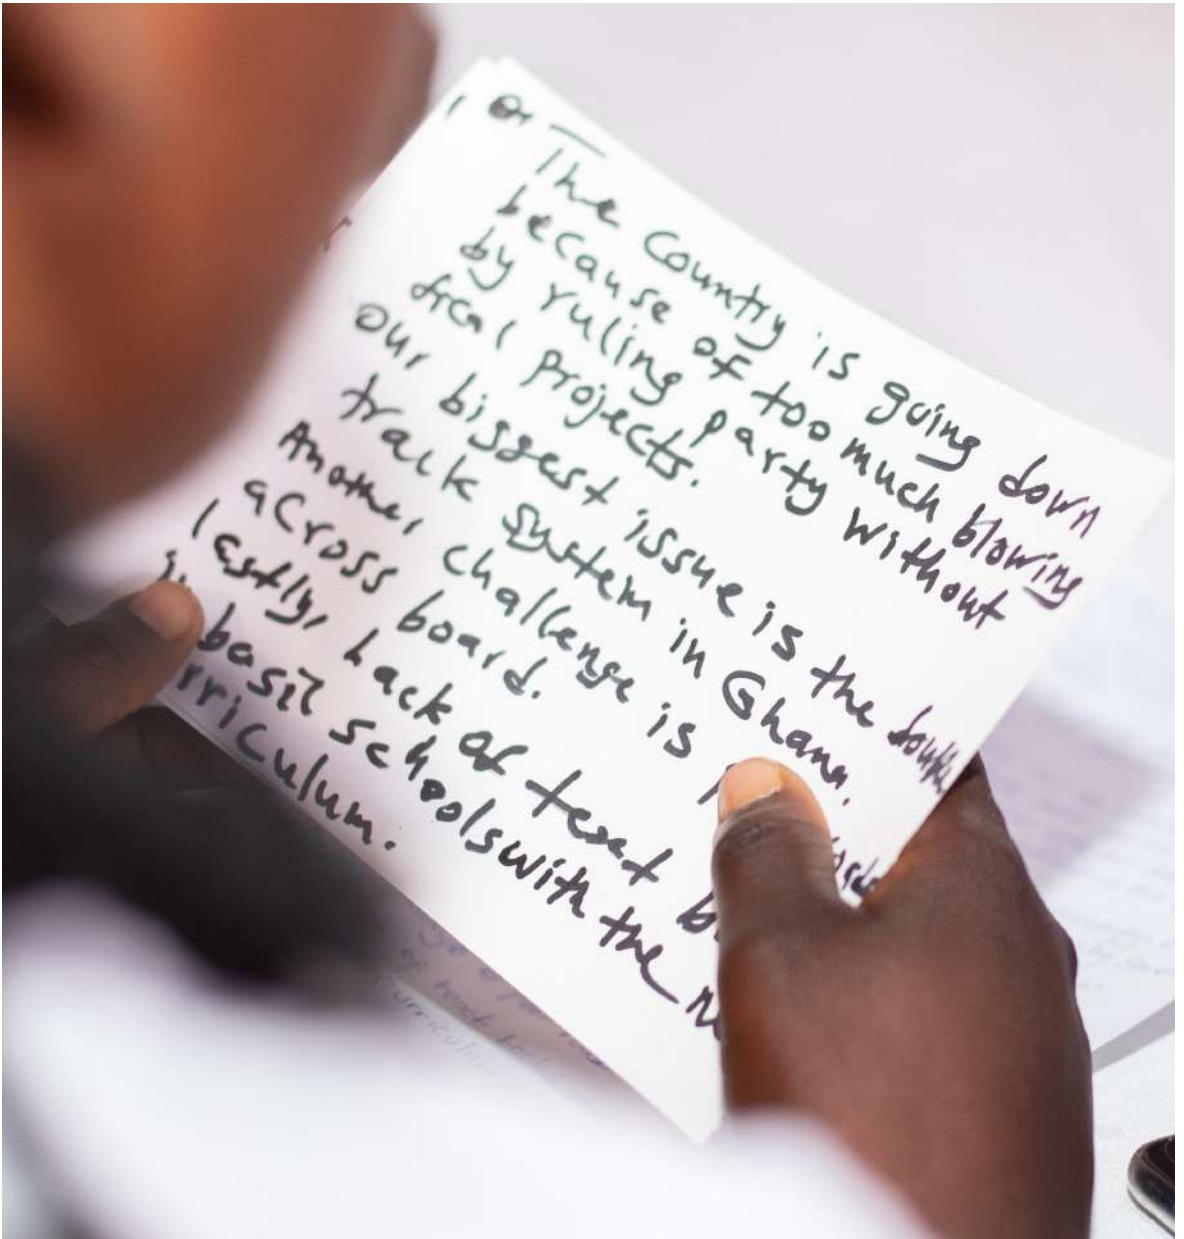 The Country is going down
because of too much blowing
by ruling party without
projects.
our biggest issue is the double
track system in Ghana.
Another challenge is
across board.
lastly, lack of text
basic schools with the
curriculum.